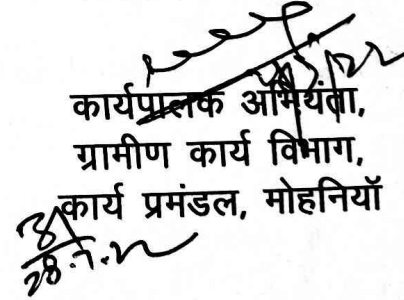 कार्यपालक अभियंता,
ग्रामीण कार्य विभाग,
कार्य प्रमंडल, मोहनियाॅ
28.7.22